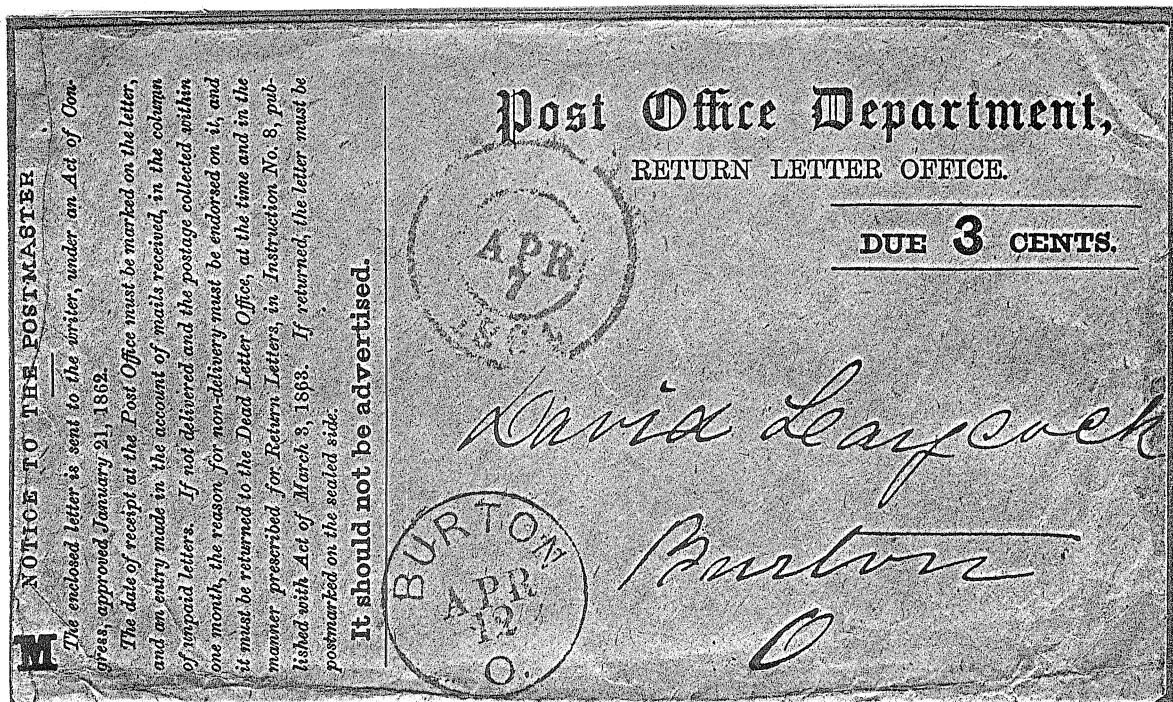 NOTICE TO THE POSTMASTER
The enclosed letter is sent to the writer, under an Act of Con-
gress, approved January 21, 1862.
The date of receipt at the Post Office must be marked on the letter,
and an entry made in the account of mails received, in the column
of unpaid letters. If not delivered and the postage collected within
one month, the reason for non-delivery must be endorsed on it, and
it must be returned to the Dead Letter Office, at the time and in the
manner prescribed for Return Letters, in Instruction No. 8, pub-
lished with Act of March 3, 1863. If returned, the letter must be
postmarked on the sealed side.
It should not be advertised.
M
Post Office Department,
RETURN LETTER OFFICE.
DUE 3 CENTS.
APR
7
David Leaycock
Burton
O
BURTON
APR
12
O.